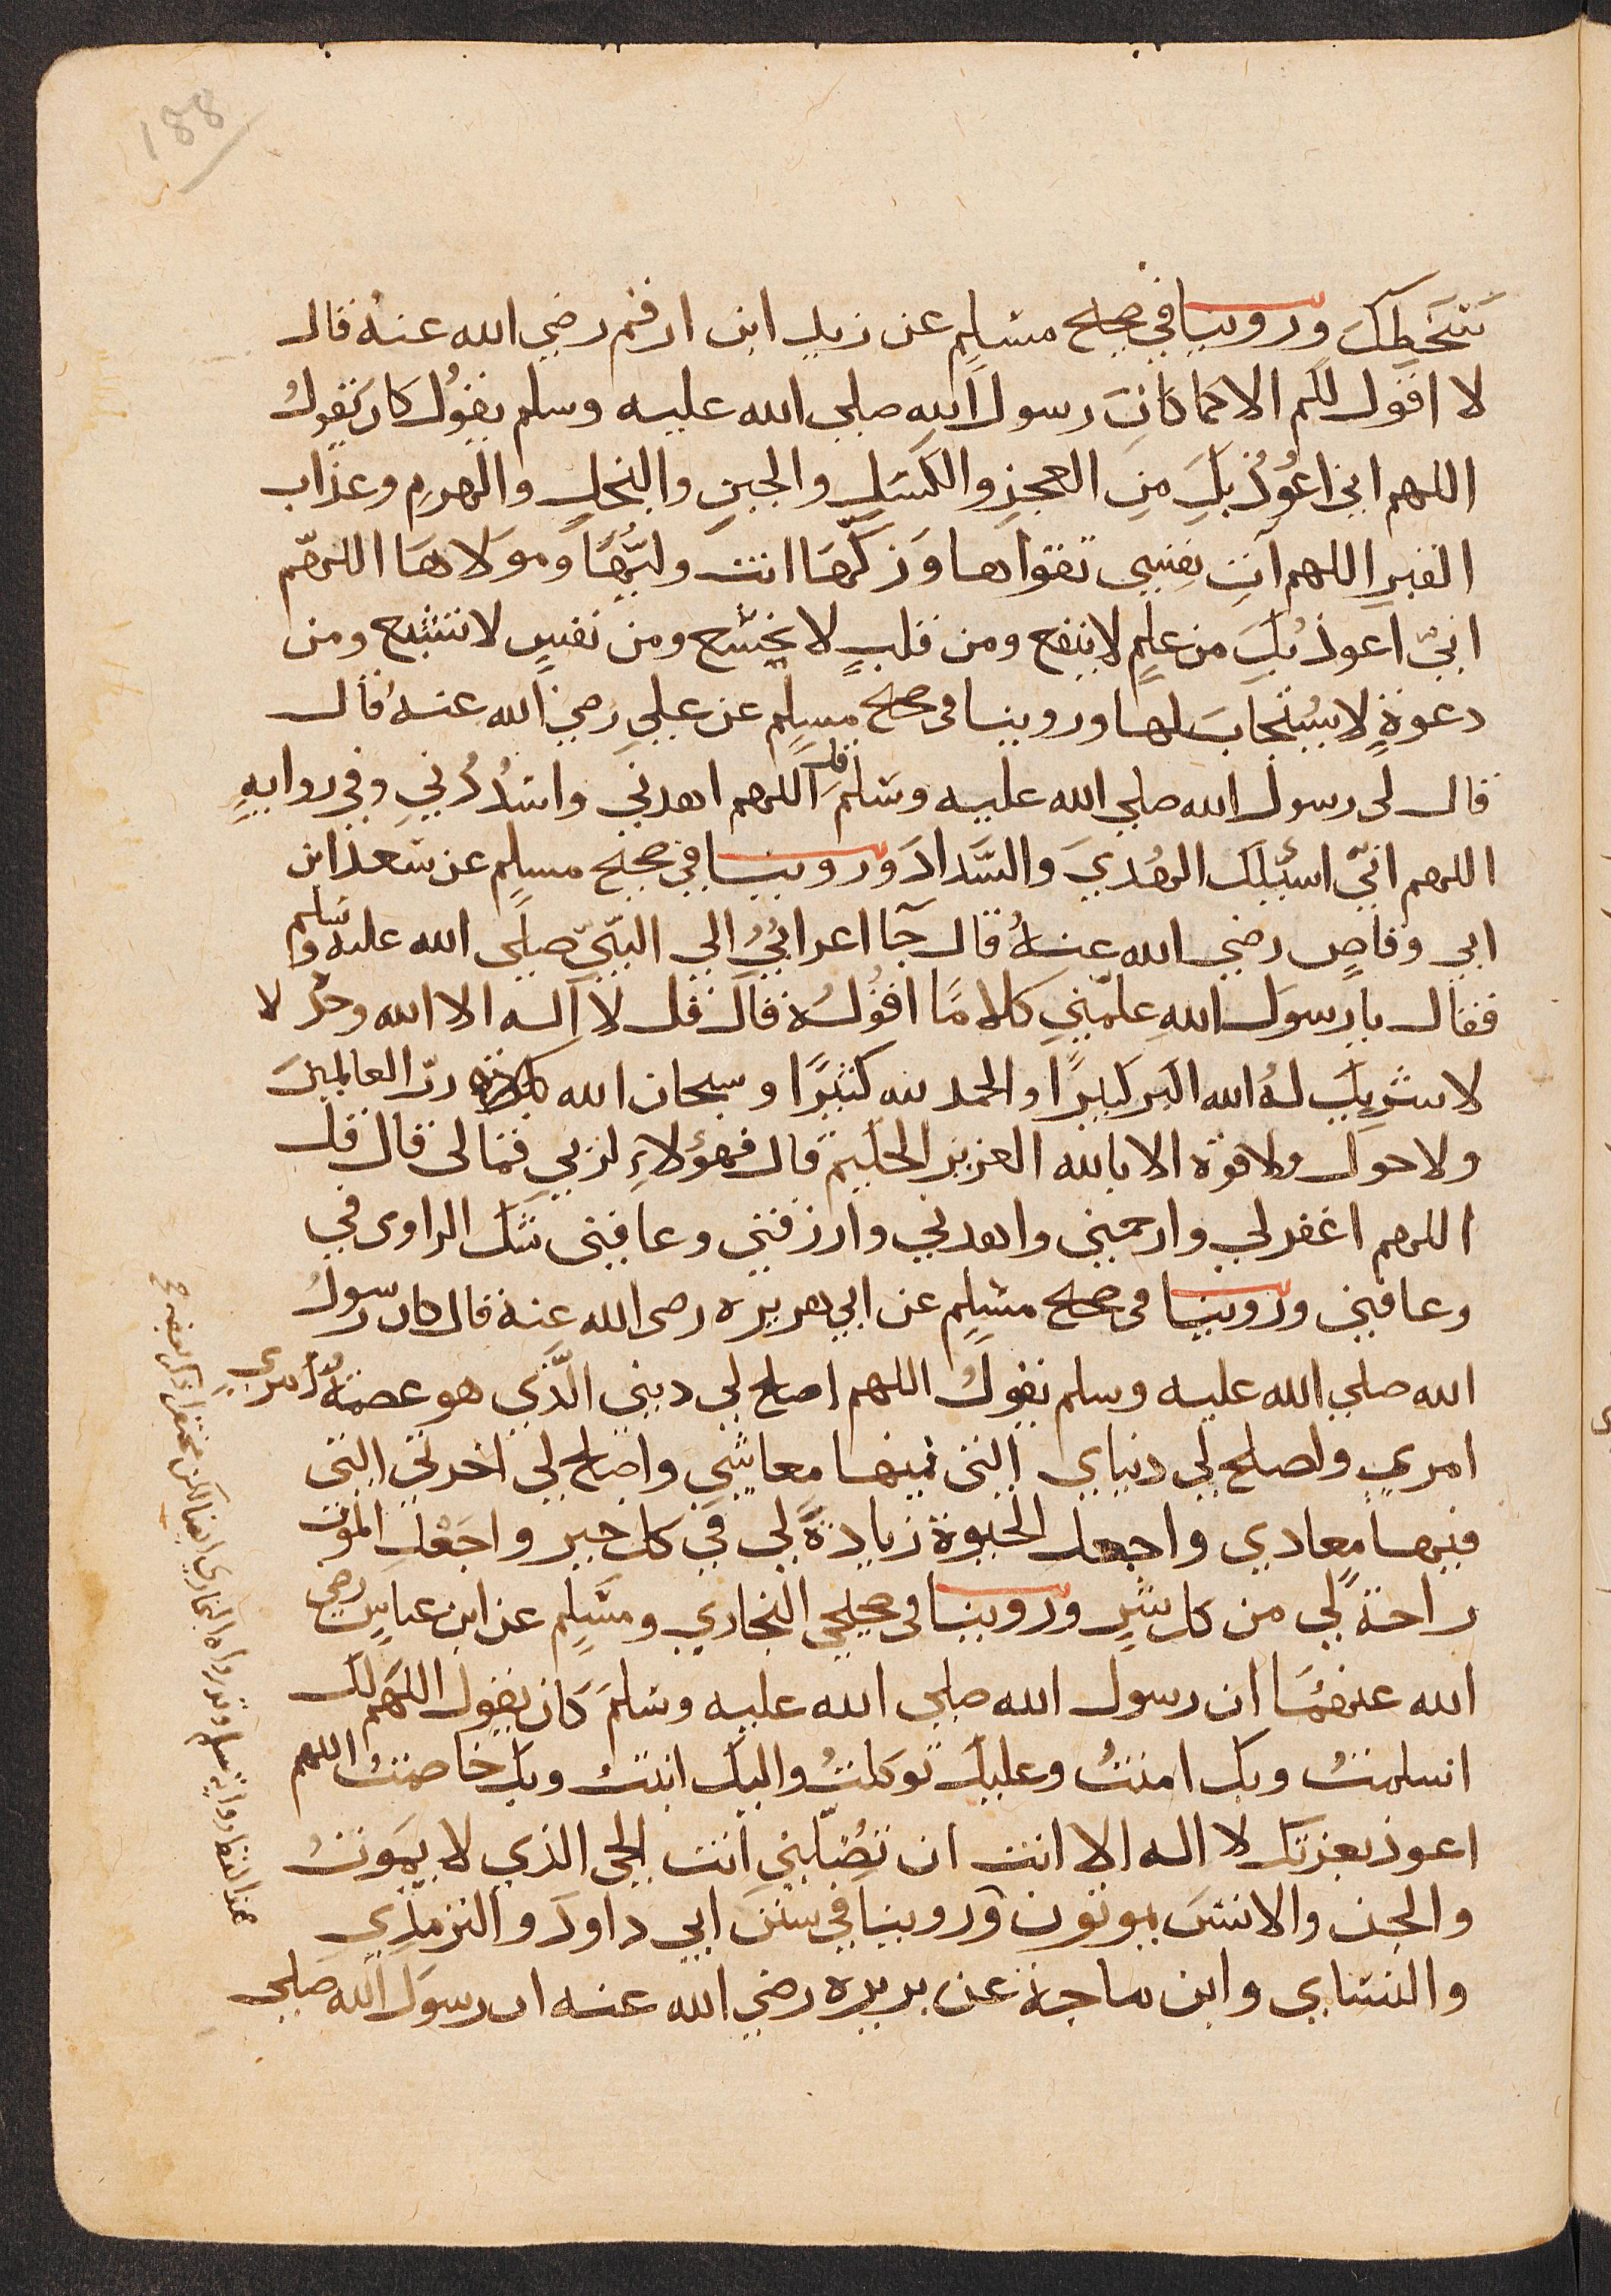 188
سَخَطِكَ وروينا في صحيح مسلم عن زيد ابن ارقم رضي الله عنهُ قال
لا اقول لكم الا كما كانَ رسول الله صلي الله عليه وسلم يقوُل كان يَقول
اللهم اني اعُوذُ بكَ منِ العجزِ والكسَلِ والجبنِ والبخلِ والهرمِ وعذاب
القبرِ اللهم آتِ نفسِي تقواها وَزكّهَا انت وليُّهَا وموَلاهَا اللهمّ
انيّ اعوذ بُكَ من علمٍ لا ينفع ومن قلبٍ لا يخشَع ومن نفسٍ لا تشبع ومن
دعوةٍ لا يسُتجابَ لها وروينا فى صحيح مسلمٍ عن عليِ رضي الله عنهُ قال
قال لي رسول الله صلي الله عليه وسَلم قل اللهم اهدني واسْدُدْنيِ وفي روايهٍ
اللهم انيّ اسئلك الهُديَ والسَّدادَ وروينا في صحيح مسلمٍ عن سَعد ابن
ابي وقاصٍ رضي الله عنهُ قال جآ اعرابيُ الي النبّيّ صلي الله عليه وسَلم
فقال يا رسوَل اللهِ علمّنيِ كلامًا اقوُلهُ قال قل لا اله الا الله وحده لا
لا شريكَ لهُ الله اكبر كبيرًا والحمد لله كثيرًا وسبحان الله ربّ العالمينَ
ولا حول ولا قوة الا بالله العزيز الحكيم قال فهؤلاءِ لربيِ فما لى قال قل
اللهم اغفر لي وارحمني واهدني وارزقني وعافني شك الراوى في
وعافني وروينا فى صحيح مسلمٍ عن ابي هريره رضى الله عنهُ قال كان رسولُ
الله صلي الله عليه وسلم يقولُ اللهم اصلح لي ديني الّذي هو عصمةُ أمري
امريِ واصلح لي دنياي التي فيها معاشيِ واصلح لي اخرتي التي
فيها معادي واجعل الحيوة زيادةً لي في كل خير واجَعْل الموَت
راحةً لي من كل شرٍ وروينا فى صحيحي البخاري ومسَلمٍ عن ابن عباسٍ رضي
الله عنهُمَا ان رسول الله صلي الله عليه وسَلمَ كان يقول اللهَم لك
اسلمتُ وبك امنتُ وعليكَ توَكلتُ واليك انبتُ وبكَ خاصمتُ اللهم
اعوذ بعزتك لا اله الا انت ان تضُلّني انت الحي الذي لا يمَوتُ
والجن والانسَ يموتون وروينا في سننَ ابي داودَ والترمذيِ
والنسَاي وابن ماجة عن بريره رضي الله عنه ان رسوَل الله صلي
هذا لفظ رواية مسلم وقد رواه البخاري ايضا لكن